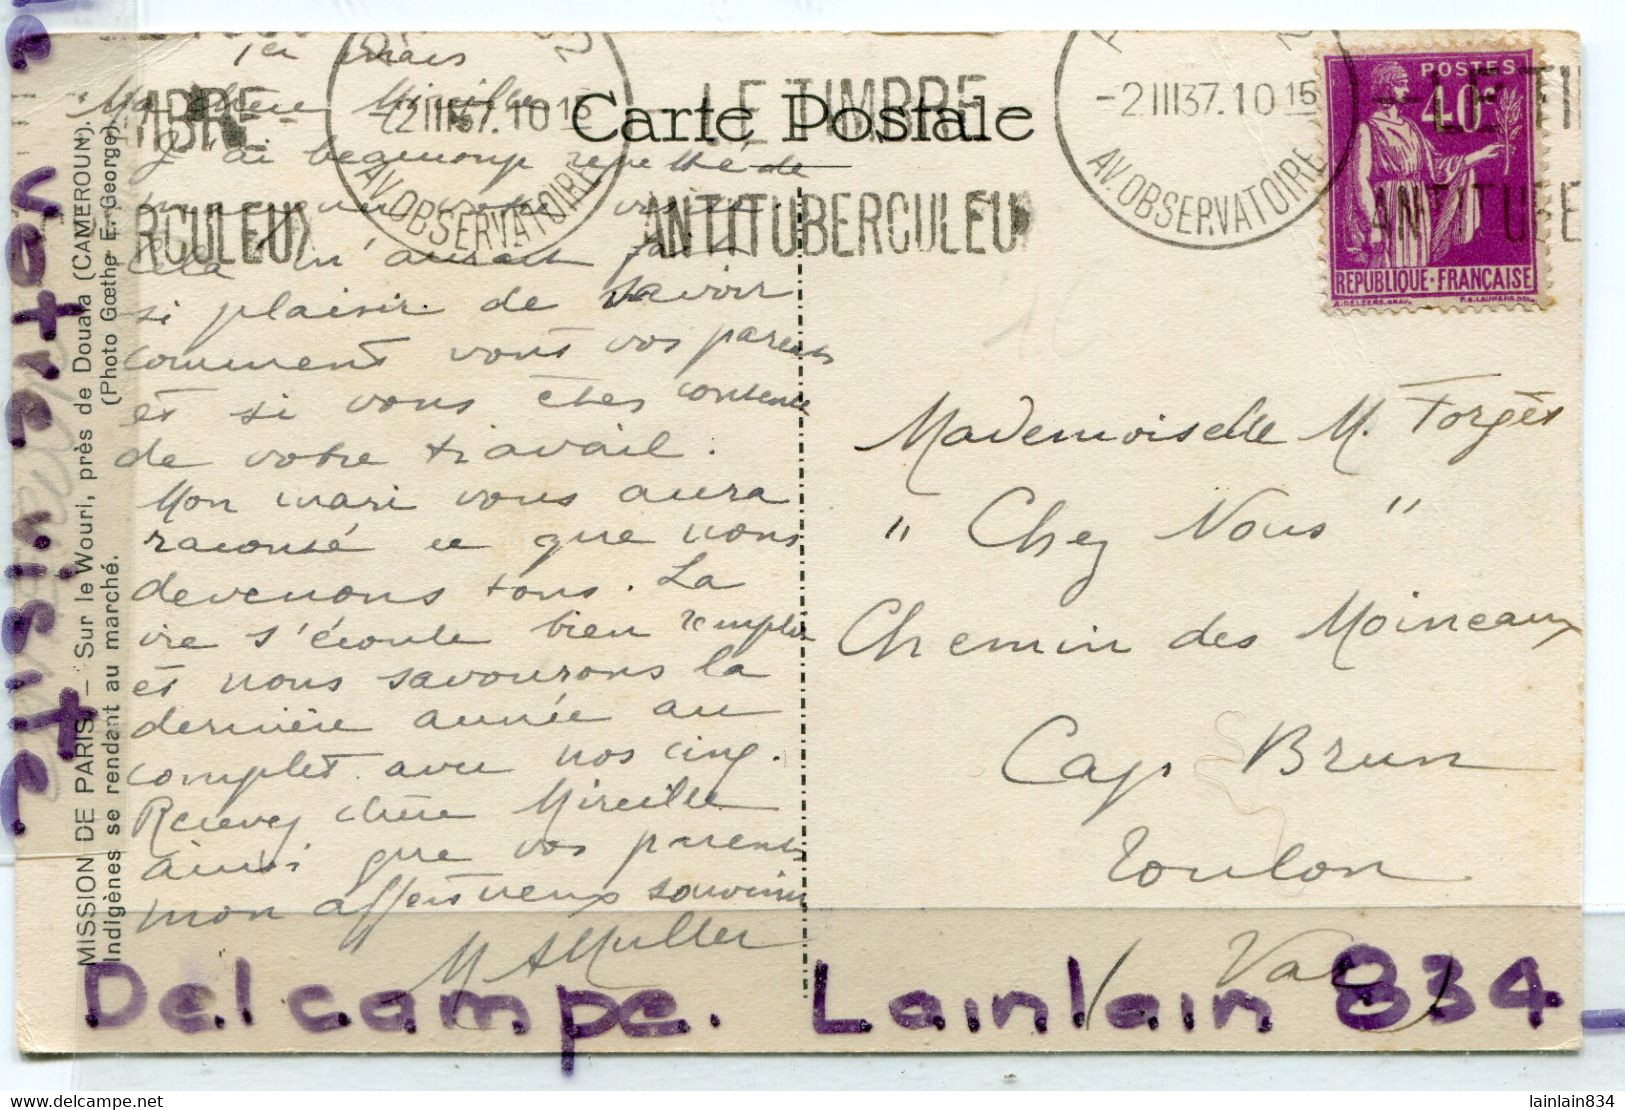 1er mars
Ma chère Mireille
J'ai beaucoup regretté de
votre visite.
Cela m'aurait fait
si plaisir de savoir
comment vont vos parents
et si vous êtes contente
de votre travail.
Mon mari vous aura
raconté ce que nous
devenons tous. La
vie s'écoule bien remplie
et nous savourons la
dernière année au
complet avec nos cinq.
Recevez chère Mireille
ainsi que vos parents
mon affectueux souvenir
M AMuller
Carte Postale
MBRE
RCULEUX
-2III37.10 15
AV. OBSERVATOIRE
LE TIMBRE
ANTITUBERCULEU
-2III37.10 15
AV. OBSERVATOIRE
LE TI
ANTITUBE
POSTES
40c
REPUBLIQUE·FRANÇAISE
J.DELZERS.GRAV.
Mademoiselle M. Forgès
"Chez Nous"
Chemin des Moineaux
Cap Brun
Toulon
(Var)
MISSION DE PARIS. — Sur le Wouri, près de Douala (CAMEROUN).
Indigènes se rendant au marché. (Photo Gœthe E. George)
votre visite
Delcampe. Lainlain 834
lainlain834